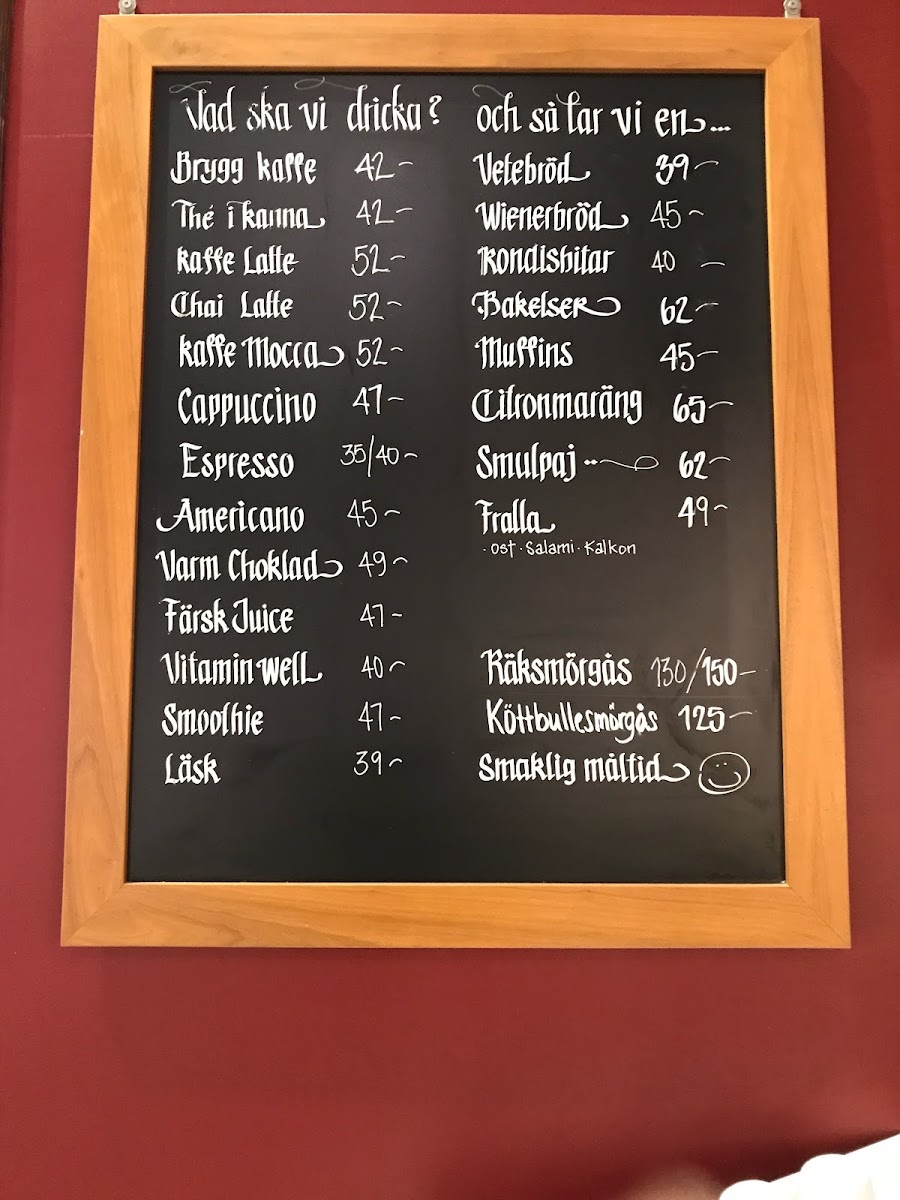 Vad ska vi dricka?
Brygg kaffe 42-
Thé i kanna 42-
kaffe Latte 52-
Chai Latte 52-
kaffe Mocca 52-
Cappuccino 47-
Espresso 35/40-
Americano 45-
Varm Choklad 49-
Färsk Juice 47-
Vitamin well 40-
Smoothie 47-
Läsk 39-
och så tar vi en...
Vetebröd 39-
Wienerbröd 45-
Konditbitar 40 -
Bakelser 62-
Muffins 45-
Citronmaräng 65-
Smulpaj 62-
Fralla 49-
· ost · Salami · Kalkon
Räksmörgås 130/150-
Köttbullesmörgås 125-
Smaklig måltid